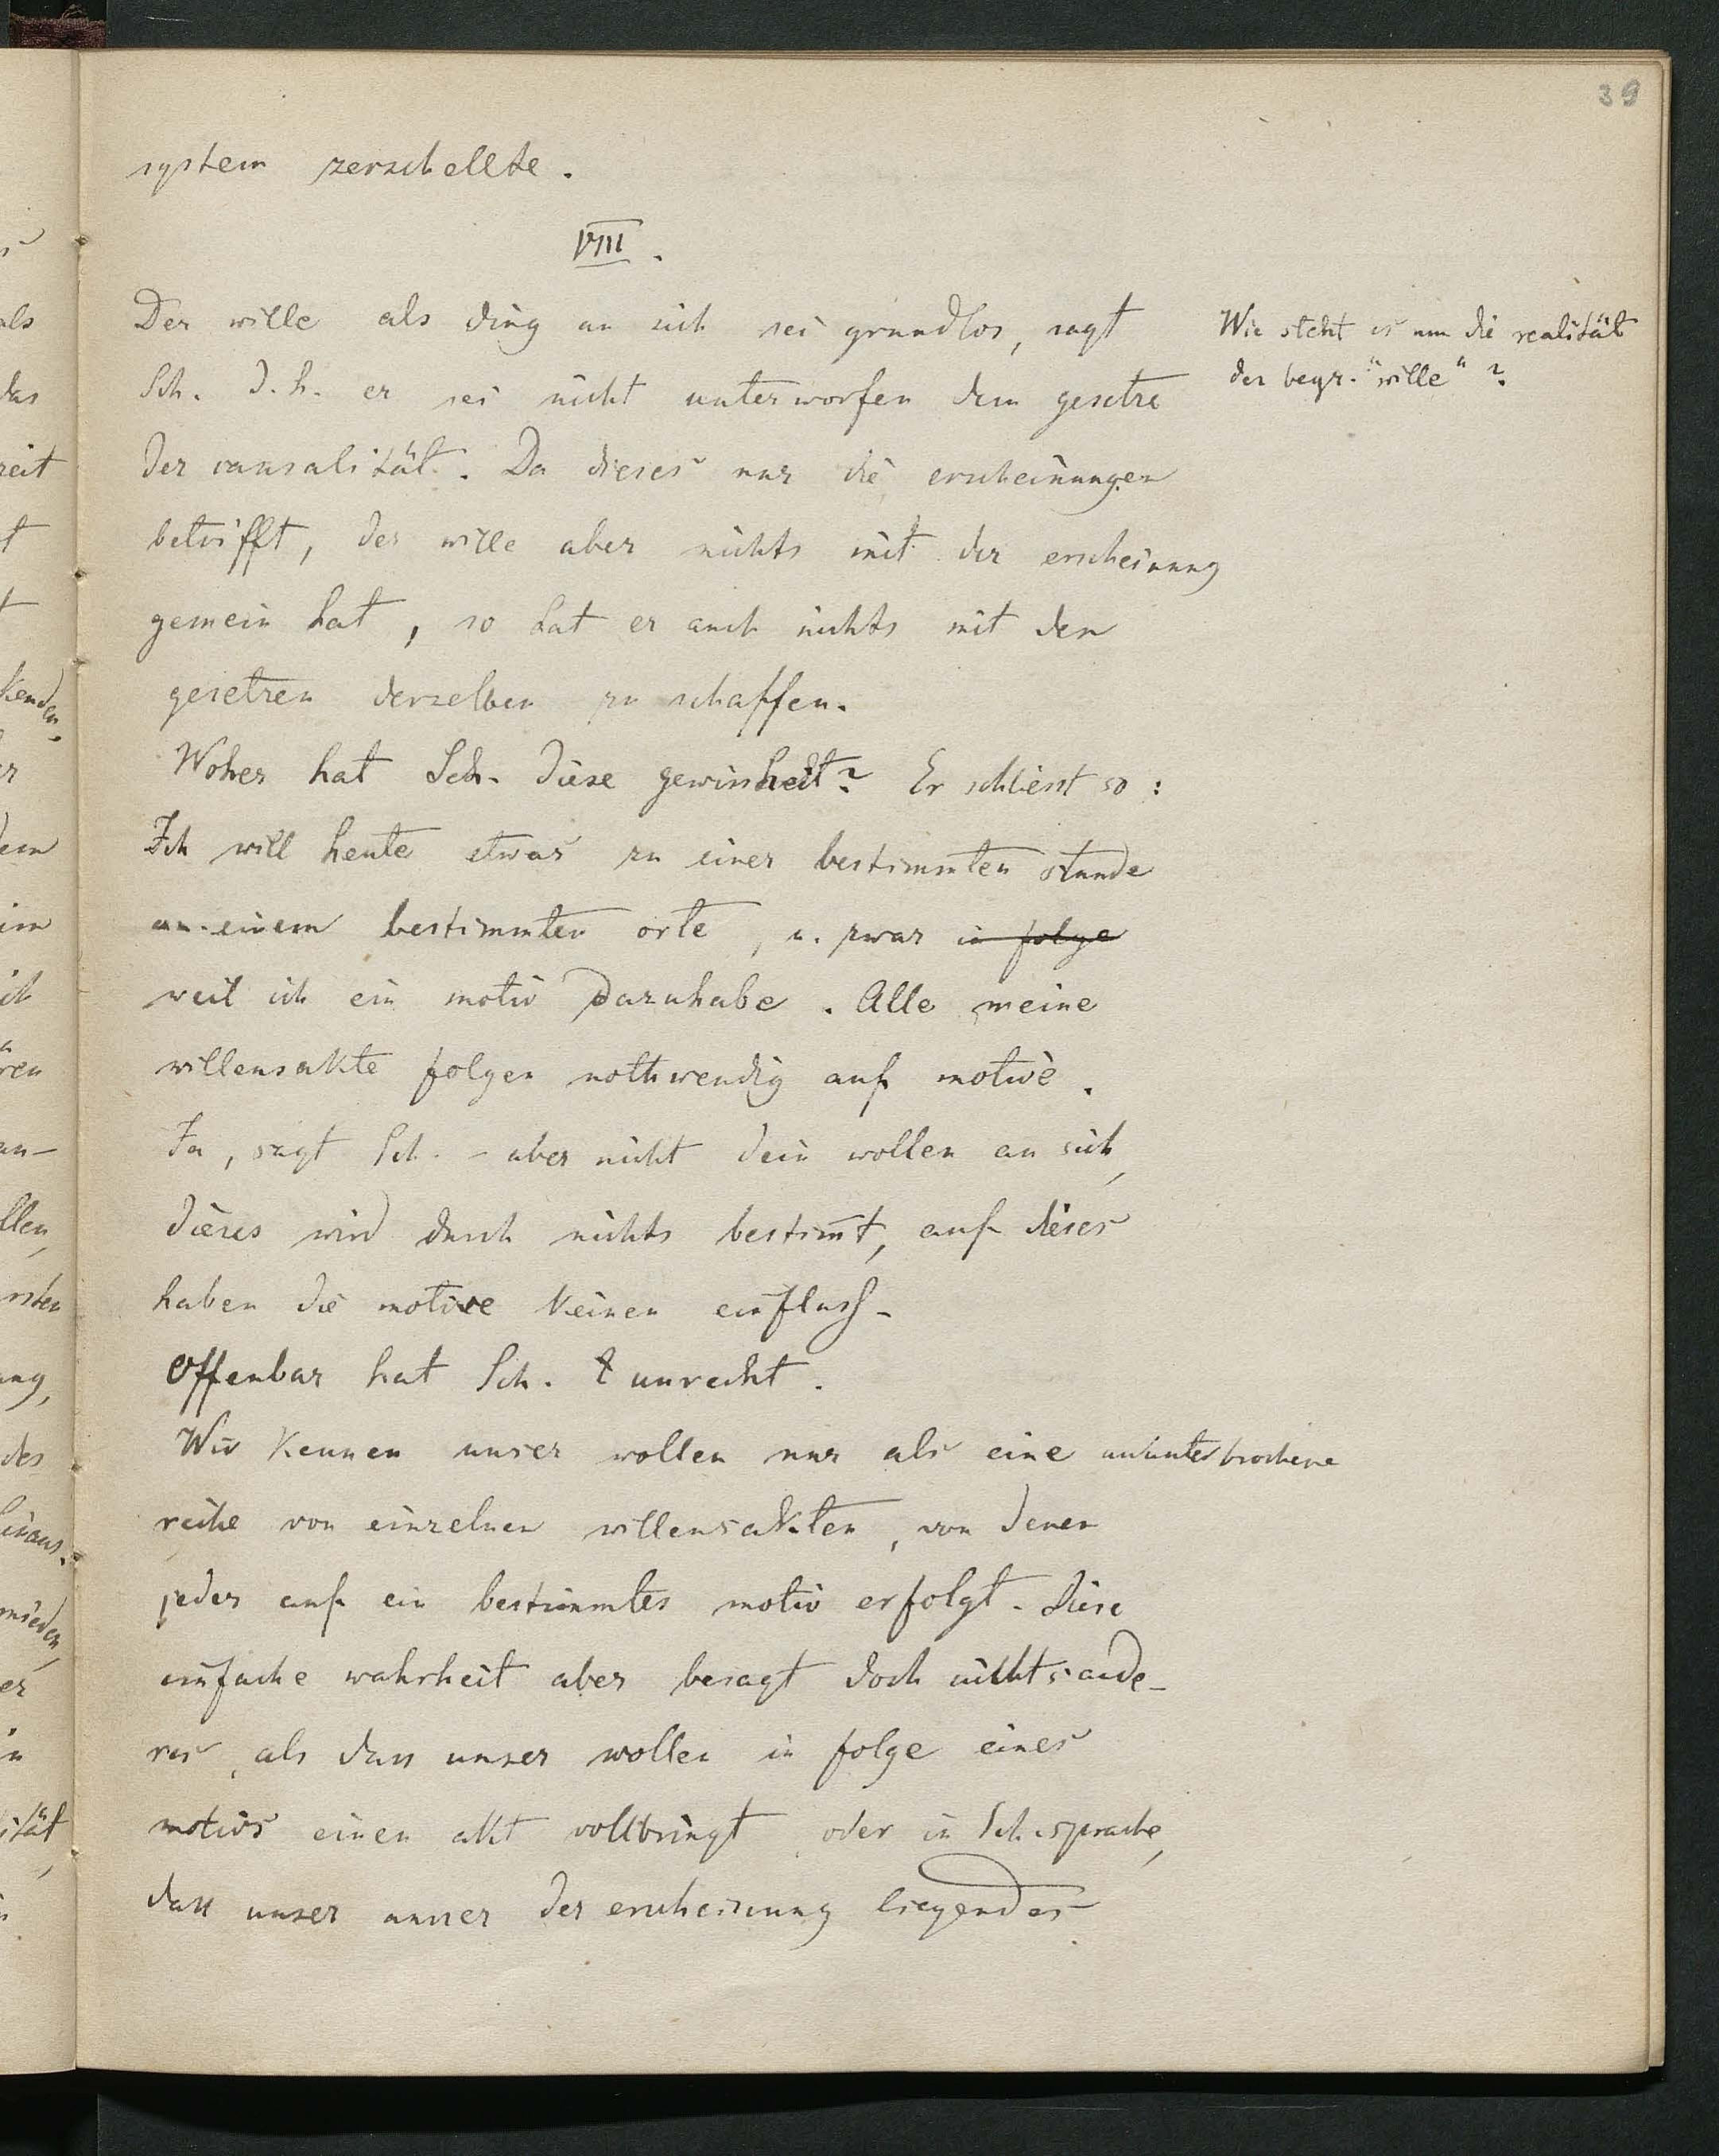 39
system zerschellte.
VIII.
Der wille als ding an sich sei grundlos, sagt
Sch. d. h. er sei nicht unterworfen dem gesetze
der causalität. Da dieses nur die erscheinungen
betrifft, der wille aber nichts mit der erscheinung
gemein hat, so hat er auch nichts mit den
gesetzen derselben zu schaffen.
Woher hat Sch. diese gewissheit? Er schliesst so:
Ich will heute etwas zu einer bestimmten stunde
an einem bestimmten orte, u. zwar in folge
weil ich ein motiv dazuhabe. Alle meine
willensakte folgen nothwendig auf motive.
Ja, sagt Sch. - aber nicht dein wollen an sich,
dieses wird durch nichts bestim̄t, auf dieses
haben die motive keinen einfluss.
Offenbar hat Sch. unrecht.
Wir kennen unser wollen nur als eine ununterbrochene
reihe von einzelnen willensakten, von denen
jeder auf ein bestimmtes motiv erfolgt. Diese
einfache wahrheit aber besagt doch nichts ande-
res, als dass unser wollen in folge eines
motivs einen akt vollbringt, oder in Sch. sprache,
dass unser ausser der erscheinung liegendes
Wie steht es um die realität
des begr. "wille"?
als
das
zeit
t
kenden,
dem
im
ich
ren
an-
llen,
rsten
ung,
des
hinaus.
mieden,
er
in
ität,